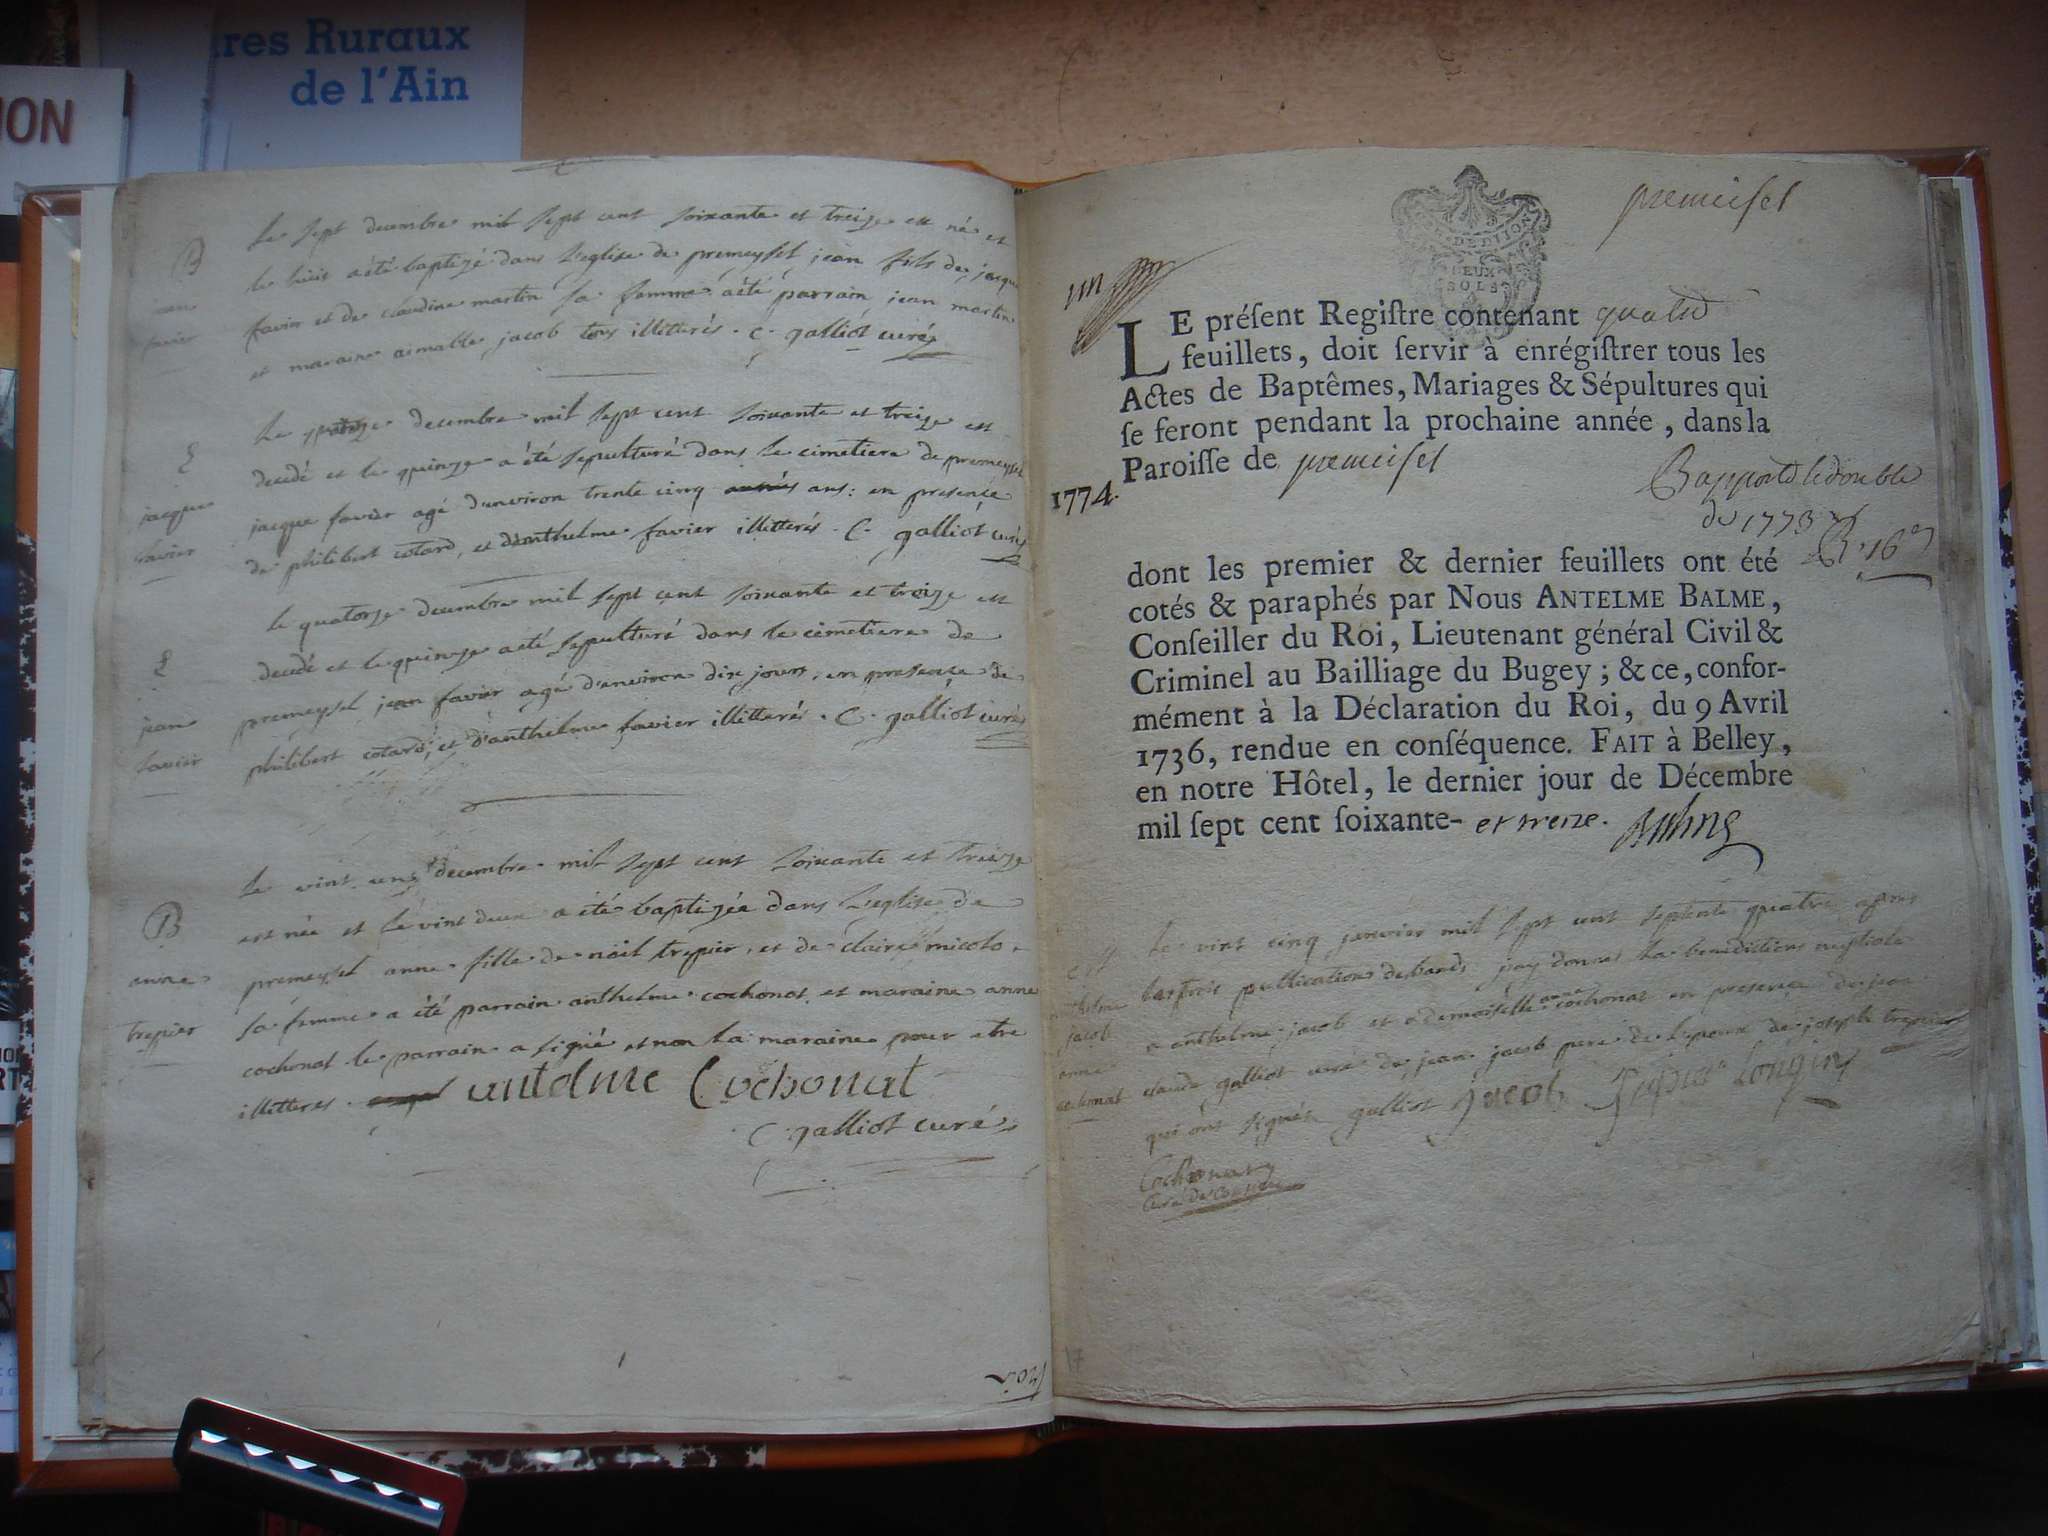 res Ruraux
de l'Ain
ION
B
jean
favier
Le sept decembre mil sept cent soixante et treize est né et
le huit a été baptizé dans l'eglise de premeysel jean fils de jacque
favier et de claudine martin sa femme a été parrain jean martin
et maraine aimable jacob tous illitterés . C . galliot curé
S
jacque
favier
Le quatorze decembre mil sept cent soixante et treize est
decedé et le quinze a été sepulturé dans le cimetiere de premeysel
jacque favier agé d'environ trente cinq ans : en presence
de philibert cotard, et d'anthelme favier illitterés . C . galliot curé
S
jean
favier
le quatorze decembre mil sept cent soixante et treize est
decedé et le quinze a été sepulturé dans le cimetiere de
premeysel jean favier agé d'environ dix jours, en presence de
philibert cotard, et d'anthelme favier illitterés . C . galliot curé
B
anne
trepier
Le vint un decembre mil sept cent soixante et treize
est née et le vint deux a été baptizée dans l'eglise de
premeysel anne fille de noël trepier, et de claire micolo
sa femme a été parrain anthelme cochonat et maraine anne
cochonat le parrain a signé et non la maraine pour etre
illitteres . antelme Cochonat
C galliot curé
premeisel
DE DIJON
DEUX
SOLS
un
LE préſent Regiſtre contenant quatre
feuillets, doit ſervir à enrégiſtrer tous les
Actes de Baptêmes, Mariages & Sépultures qui
ſe feront pendant la prochaine année, dans la
Paroiſſe de premeisel
1774.
Rapporté le double
de 1773
dont les premier & dernier feuillets ont été
cotés & paraphés par Nous ANTELME BALME,
Conſeiller du Roi, Lieutenant général Civil &
Criminel au Bailliage du Bugey ; & ce, confor-
mément à la Déclaration du Roi, du 9 Avril
1736, rendue en conſéquence. FAIT à Belley,
en notre Hôtel, le dernier jour de Décembre
mil ſept cent ſoixante- et treize.
jacob
anne
cochonat
Le vint cinq janvier mil sept cent septente quatre apres
les trois publications de bands jay donnes la benediction nuptiale
a anthelme jacob et a demoiselle anne cochonat en presence de jean
claude galliot curé de jean jacob pere de l'epoux de joseph trepier
qui ont signés galliot jacob Longin
Cochonat
17